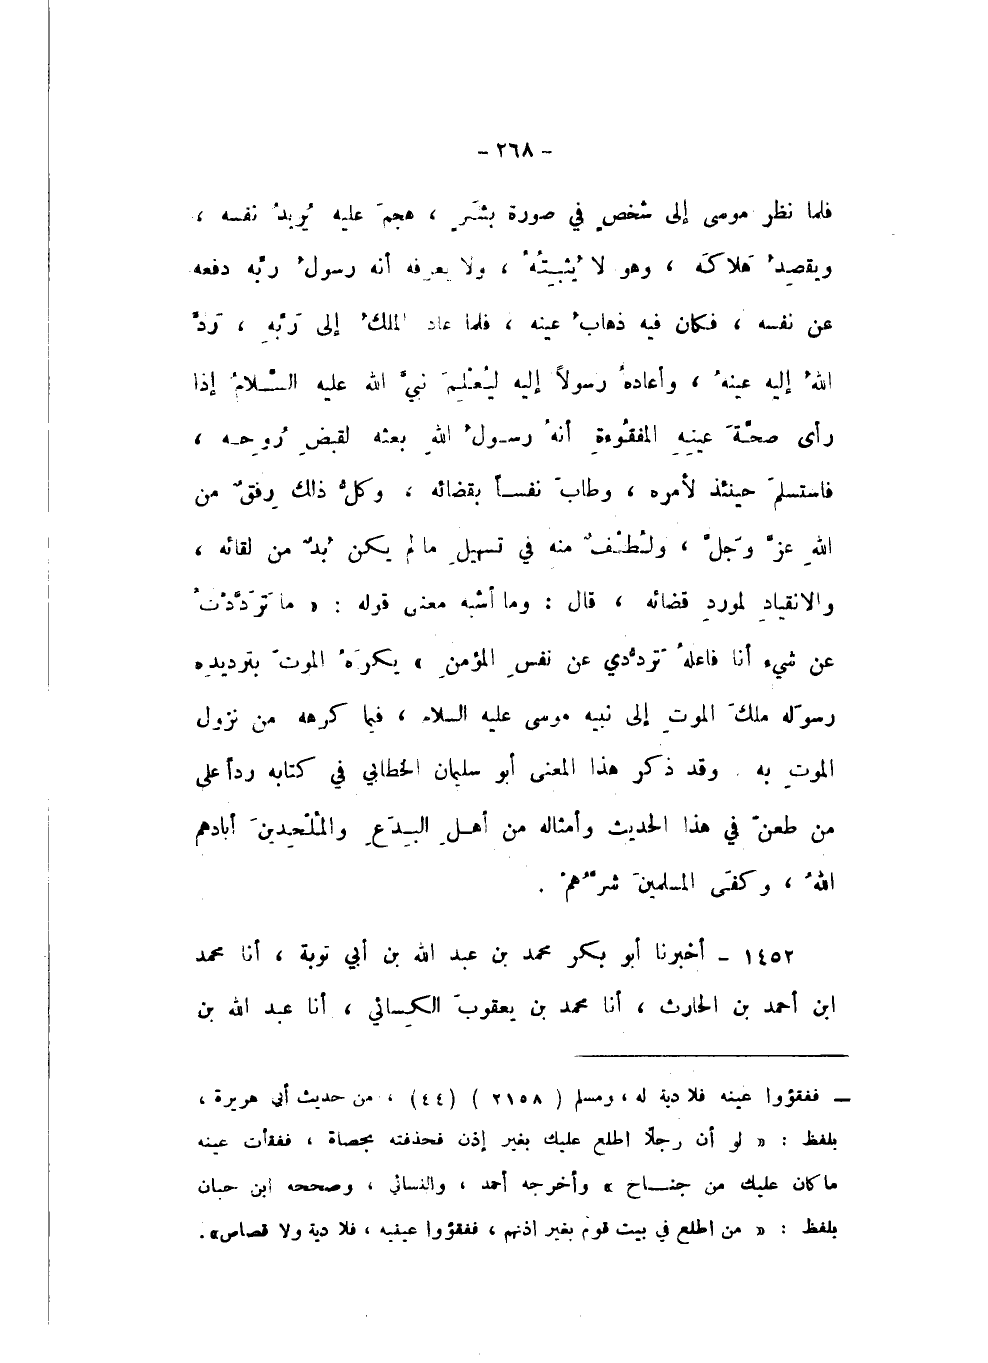 - ٢٦٨ -
فلما نظر موسى إلى شخصٍ في صورة بشَرٍ ، هجمَ عليه يُريدُ نفسه ،
ويقصدُ هَلاكَه ، وهو لا يُثبِتُهُ ، ولا يعرفه أنه رسولُ ربِّه دفعه
عن نفسه ، فكان فيه ذهابُ عينه ، فلما عاد الملكُ إلى رَبِّهِ ، رَدَّ
اللهُ إليه عينهُ ، وأعادهُ رسولاً إليه ليُعْلِمَ نبيَّ الله عليه السَّلامُ إذا
رأى صحَّةَ عينِهِ المفقُوءةِ أنهُ رسولُ اللهِ بعثه لقبضِ رُوحه ،
فاستسلمَ حينئذ لأمره ، وطابَ نفساً بقضائه ، وكلُّ ذالك رِفقٌ من
اللهِ عزَّ وَجلَّ ، ولُطْفٌ منه في تسهيلِ ما لم يكن بُدٌّ من لقائه ،
والانقيادِ لموردِ قضائه ، قال : وما أشبه معنى قوله : « ما تَرَدَّدْتُ
عن شيء أنا فاعلهُ تَردُّدي عن نفسِ المؤمنِ » يكرَهُ الموتَ بترديدِه
رسوله ملكَ الموتِ إلى نبيه موسى عليه السلام ، فيما كرهه من نزول
الموتِ به . وقد ذكر هذا المعنى أبو سليمان الخطابي في كتابه رداً على
من طعنَ في هذا الحديث وأمثاله من أهلِ البِدَعِ والمُلْحِدينَ أبادهم
اللهُ ، وكفَى المسلمينَ شرَّهُمْ .
١٤٥٢ - أخبرنا أبو بكر محمد بن عبد الله بن أبي توبة ، أنا محمد
ابن أحمد بن الحارث ، أنا محمد بن يعقوبَ الكِسائي ، أنا عبد الله بن
ــ ففقؤوا عينه فلا دية له ، ومسلم ( ٢١٥٨ ) (٤٤) ، من حديث أبي هريرة ،
بلفظ : « لو أن رجلًا اطلع عليك بغير إذن فحذفته بحصاة ، ففقأت عينه
ما كان عليك من جنــاح » وأخرجه أحمد ، والنسائي ، وصححه ابن حبان
بلفظ : « من اطلع في بيت قوم بغير اذنهم ، ففقؤوا عينيه ، فلا دية ولا قصاص».